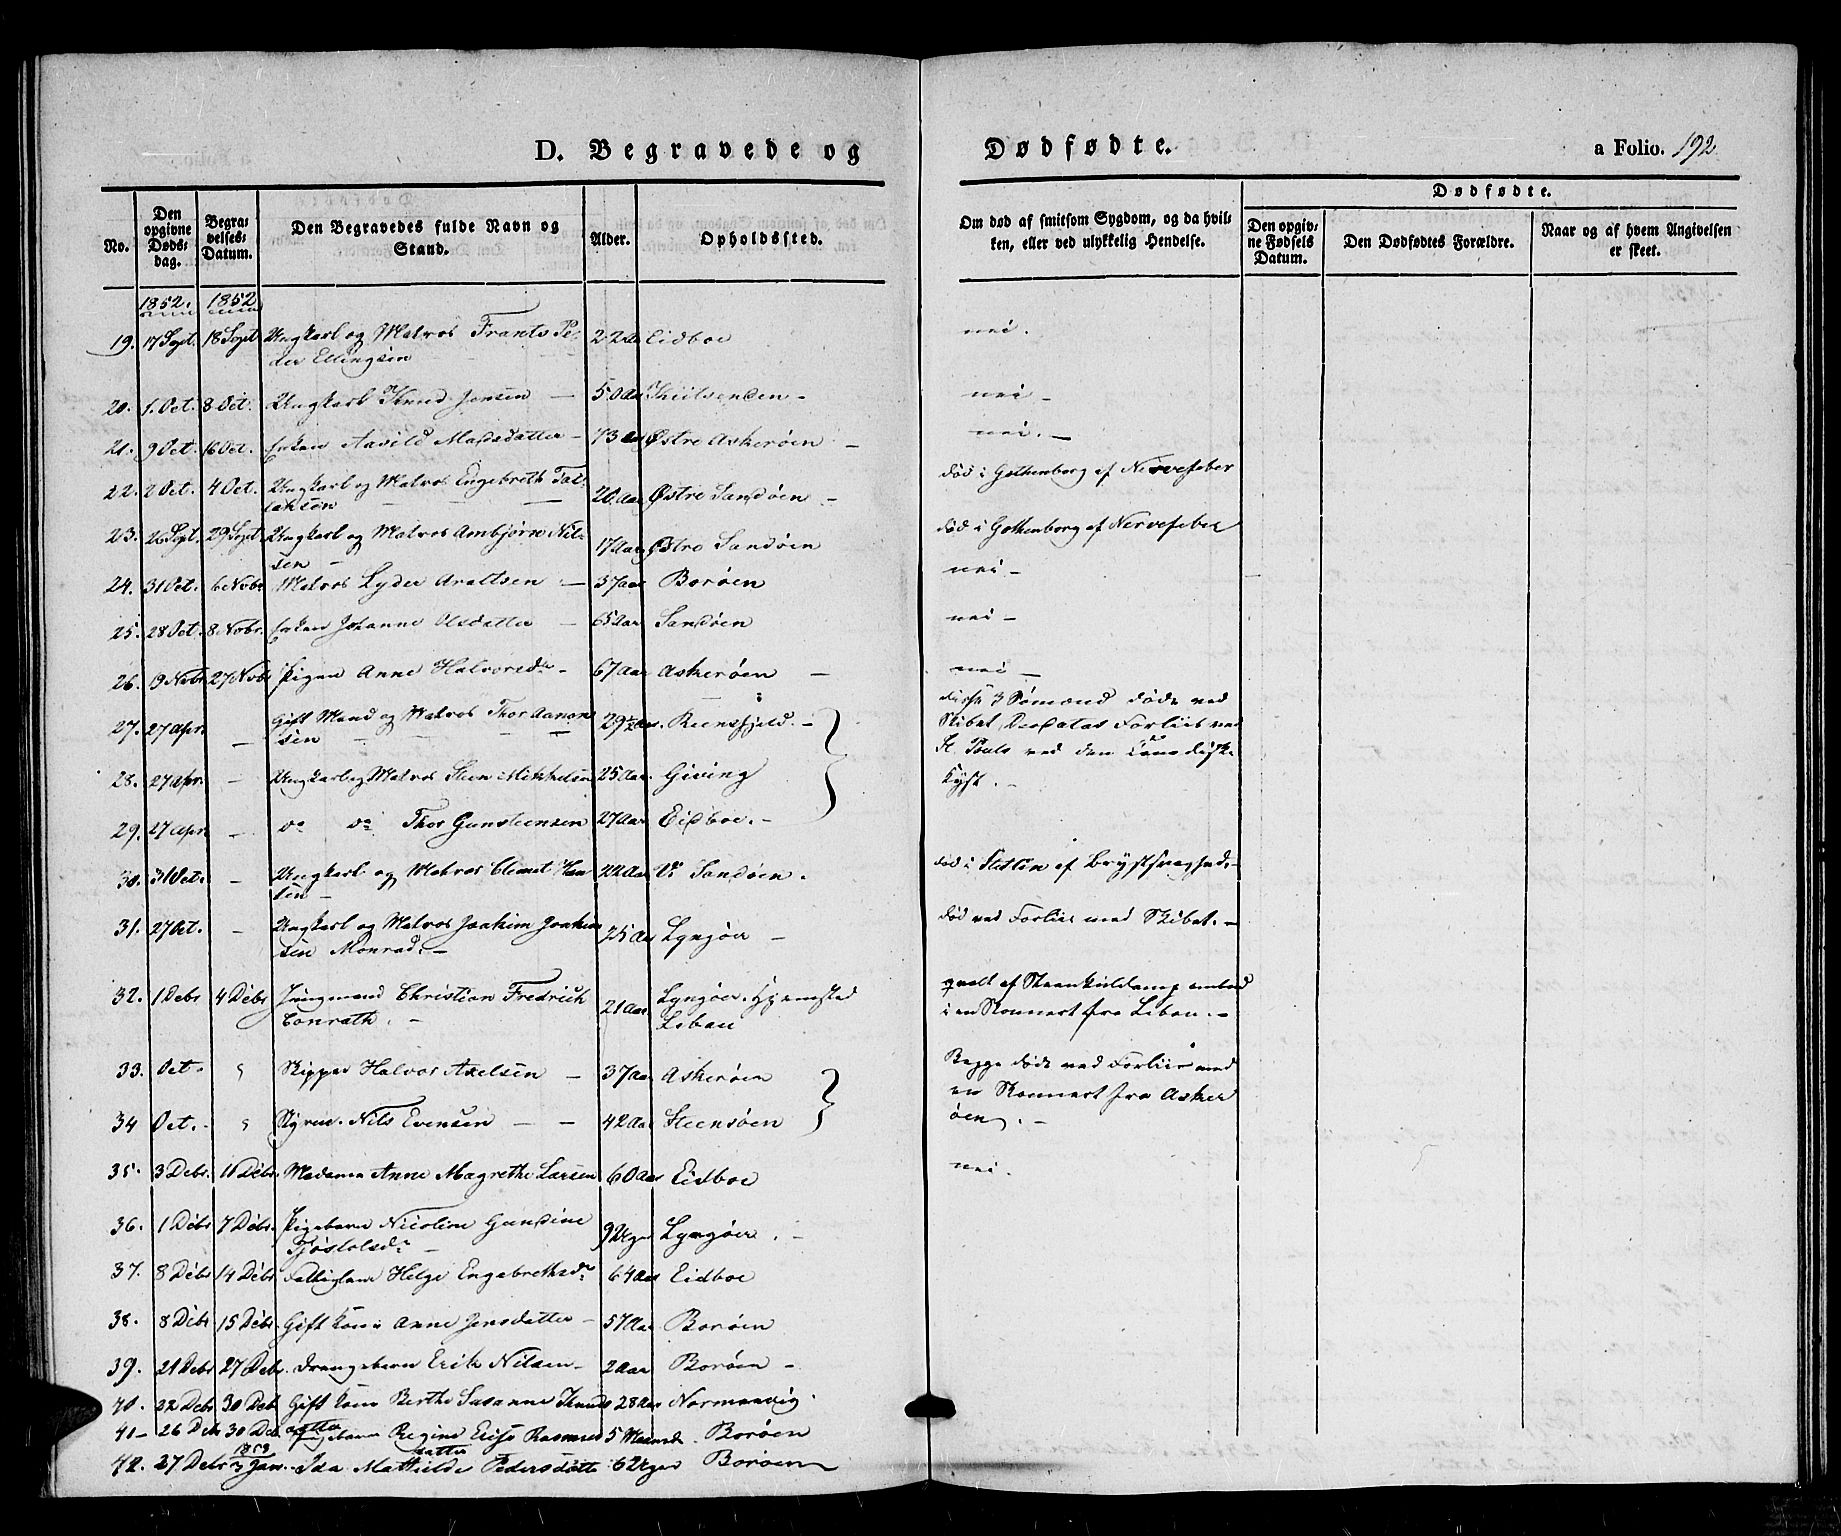 D. Begravede og Dødfødte. a Folio. 192
No.
Den opgivne Dødsdag.
Begravelses-Datum.
Den Begravedes fulde Navn og Stand.
Alder.
Opholdssted.
Om død af smitsom Sygdom, og da hvilken, eller ved ulykkelig Hendelse.
Dødfødte.
Den opgivne Fødsels Datum.
Den Dødfødtes Forældre.
Naar og af hvem Angivelsen er skeet.
1852. 1852
19. 17 Sept. 18 Sept Ungkarl og Matros Frants Pe-
der Ellingsen 22 Aar Eidboe nei.
20. 1. Oct. 8 Oct. Ungkarl Knud Jensen — 50 Aar nei —
21. 9 Oct. 16 Oct. Enken Aavild Madsdatter — 73 Aar Østre Askerøen — nei. —
22. 2 Oct. 4 Oct. Ungkarl og Matros Engebreth Tal-
laksen — 20 Aar Østre Sandøen — død i Gothenborg af Nervefeber
23. 26 Sept. 29 Sept Ungkarl og Matros Ambjørn Nil-
sen — 17 Aar Østre Sandøen død i Gothenborg af Nervefeber
24. 31 Oct. 6 Novbr Matros Lyder Araltsen — 37 Aar Borøen nei —
25. 28 Oct. 8 Novbr. Enken Johanne Olsdatter — 65 Aar Sandøen nei —
26. 19 Novbr 27 Novbr Pigen Anne Halvorsdr — 67 Aar Askerøen — nei —
27. 27 Apr. — Gift Mand og Matros Thor Aanon-
sen — 29½ Aar. — disse 3 Sømænd døde ved
Skibet Deodatas Forliis ved
St. Pouls ved den Canadisk
Kyst. —
28. 27 Apr. — Ungkarl og Matros Steen Mikkelsen 25 Aar. Giving
29. 27 Apr. — do do Thor Gunsteensen 27 Aar Eidboe. —
30. 31 Oct. — Ungkarl og Matros Clemet Han-
sen — 22 Aar Vs Sandøen. død i Stettin af Brystsvaghed. —
31. 27 Oct. — Ungkarl og Matros Joakim Joakim-
sen Monrad. — 25 Aar Lyngøer — død ved Forliis med Skibet. —
32. 1 Debr 4 Debr Jungmand Christian Fredrich
Conrath. — 21 Aar Lyngøer. Hjemsted
Libau qvalt af Steenkuldamp ombord
i en Skonnert fra Libau. —
33. Oct. " Skipper Halvor Axelsen — 37 Aar Askerøen Begge døde ved Forliis med
en Skonnert fra Asker
øen. —
34 Oct. " Styrm. Nils Evensen — — 42 Aar Steensøen
35. 3 Debr. 11 Debr Madame Anne Magrethe Larsen 60 Aar Eidboe nei.
36. 1 Debr 7 Debr. Pigebarn Nicoline Gundine
Tjøstolsdr — 9 Uger Lyngøer. —
37. 8 Debr 14 Debr Helge Engebrethsdr 64 Aar Eidboe
38. 8 Debr 15 Debr. Gift Kone Anne Jensdatter — 57 Aar Borøen
39. 21 Debr 27 Debr. Drengebarn Erik Nilsen — 2 Aar Borøen —
40. 22 Debr 30 Deb Gift Kone Berthe Susanne Knuds
datter 28 Aar Normandvig.
41 — 26 Debr 30 Deb Pigebarn Regine Erise Rasmus
datter 5 Maand. Borøen
42. 27 Debr 1853 3 Jan. Ida Mathilde Pedersdatt 6 Uger Borøen